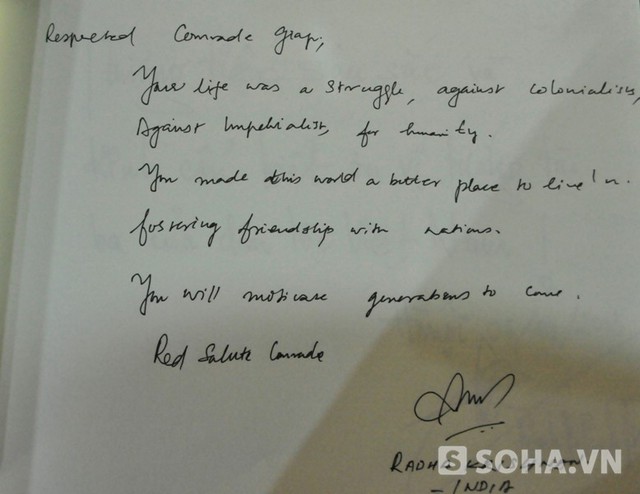 Respected Comrade Giap,
Your life was a struggle, against colonialists,
Against Imperialists, for humanity.
You made this world a better place to live in.
fostering friendship with nations.
You will motivate generations to come.
Red Salute Comrade
SOHA.VN
RADHA
- INDIA